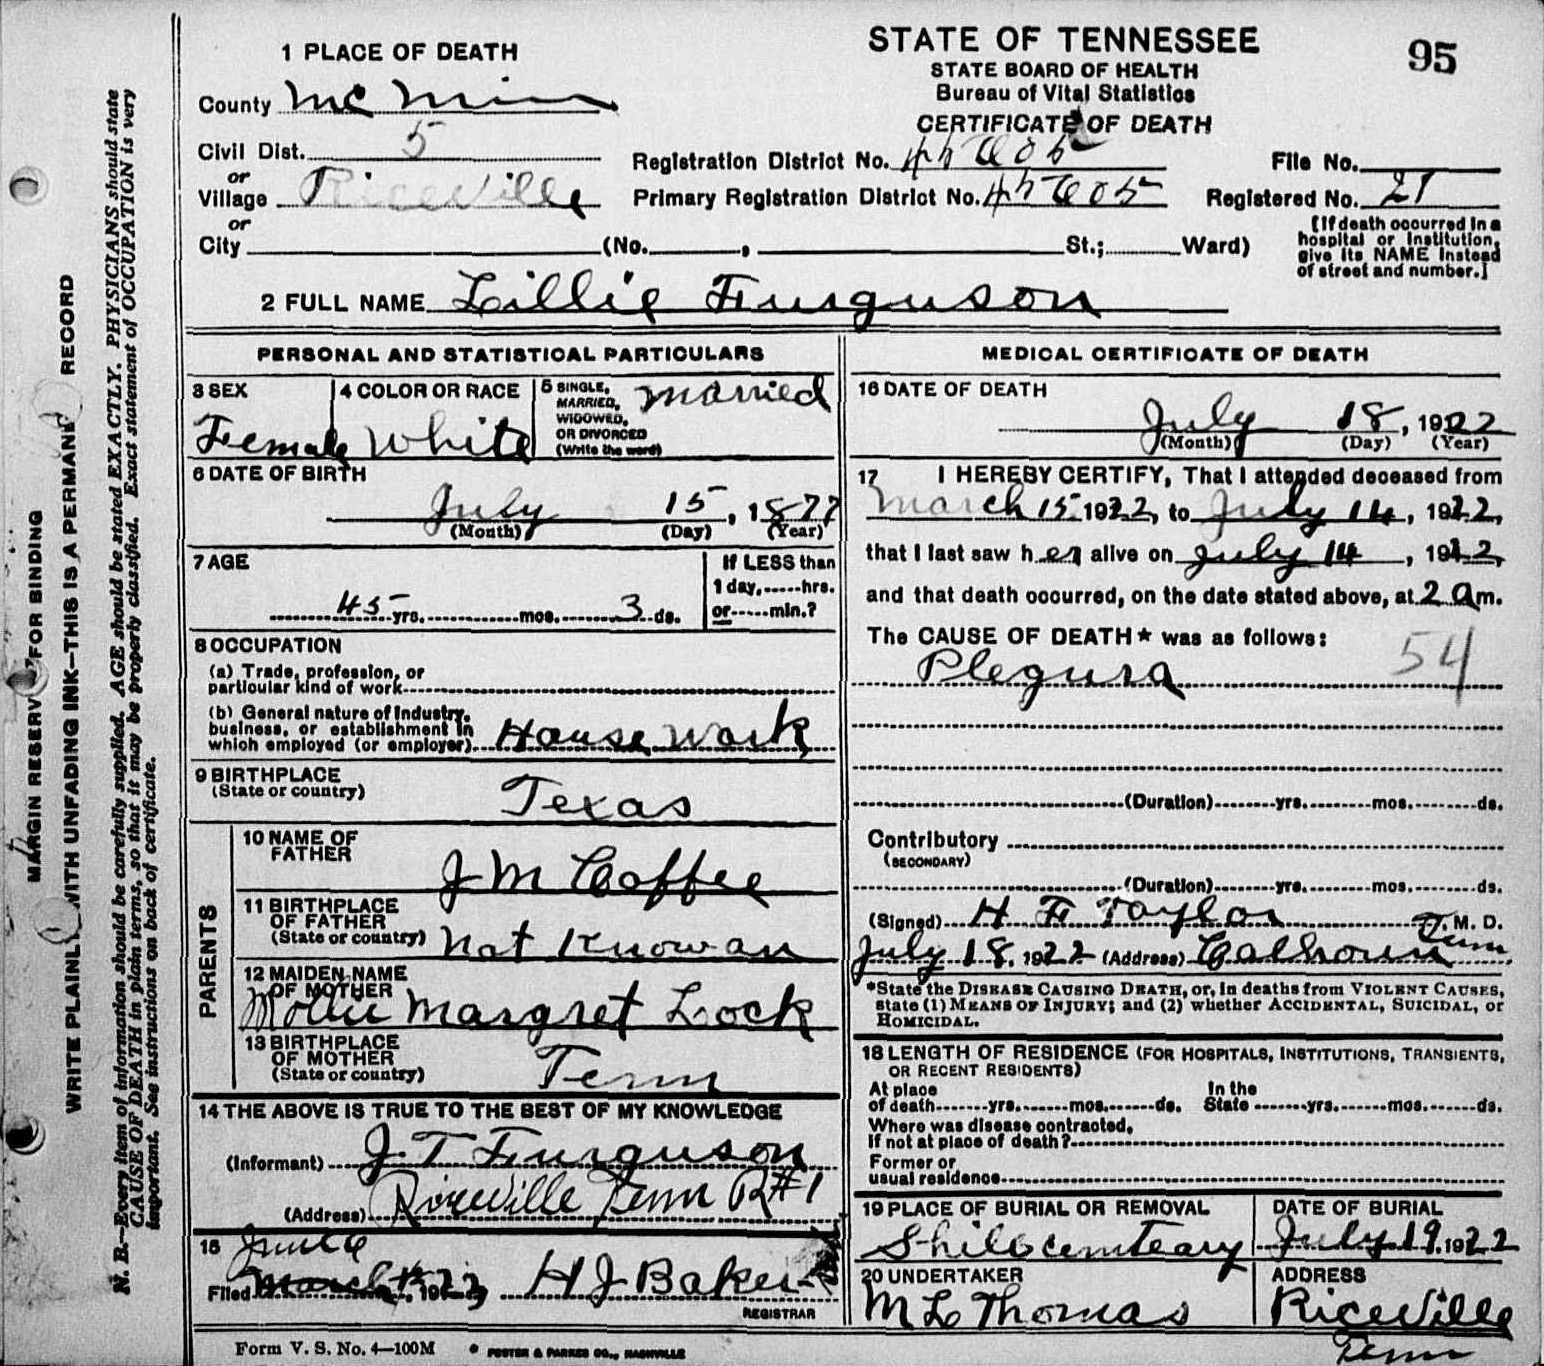 STATE OF TENNESSEE
STATE BOARD OF HEALTH
Bureau of Vital Statistics
CERTIFICATE OF DEATH
95
1 PLACE OF DEATH
County McMinn
Civil Dist. 5
or
Village Riceville
or
City (No. , St.; Ward)
Registration District No.
Primary Registration District No.
File No.
Registered No. 21
[If death occurred in a
hospital or institution,
give its NAME instead
of street and number.]
2 FULL NAME Lillie Furguson
PERSONAL AND STATISTICAL PARTICULARS
3 SEX
Female
4 COLOR OR RACE
White
5 SINGLE,
MARRIED,
WIDOWED,
OR DIVORCED
(Write the word)
Married
6 DATE OF BIRTH
July 15, 1877
(Month) (Day) (Year)
7 AGE
45 yrs. mos. 3 ds.
If LESS than
1 day, hrs.
or min.?
8 OCCUPATION
(a) Trade, profession, or
particular kind of work
(b) General nature of industry,
business, or establishment in
which employed (or employer) House Work
9 BIRTHPLACE
(State or country)
Texas
PARENTS
10 NAME OF
FATHER
J M Coffee
11 BIRTHPLACE
OF FATHER
(State or country) Not Knowan
12 MAIDEN NAME
OF MOTHER
Mollie Margret Lock
13 BIRTHPLACE
OF MOTHER
(State or country) Tenn
14 THE ABOVE IS TRUE TO THE BEST OF MY KNOWLEDGE
(Informant) J T Furguson
(Address) Riceville Tenn R#1
15
Filed 192 H J Baker
REGISTRAR
MEDICAL CERTIFICATE OF DEATH
16 DATE OF DEATH
July 18, 1922
(Month) (Day) (Year)
17 I HEREBY CERTIFY, That I attended deceased from
March 15 1922, to July 14, 1922,
that I last saw her alive on July 14, 1922,
and that death occurred, on the date stated above, at 2 a m.
The CAUSE OF DEATH* was as follows:
Plegura 54
(Duration) yrs. mos. ds.
Contributory
(SECONDARY)
(Duration) yrs. mos. ds.
(Signed) H F Taylor, M. D.
July 18, 1922 (Address) Calhoun Tenn
*State the DISEASE CAUSING DEATH, or, in deaths from VIOLENT CAUSES,
state (1) MEANS OF INJURY; and (2) whether ACCIDENTAL, SUICIDAL, or
HOMICIDAL.
18 LENGTH OF RESIDENCE (FOR HOSPITALS, INSTITUTIONS, TRANSIENTS,
OR RECENT RESIDENTS)
At place
of death yrs. mos. ds.
In the
State yrs. mos. ds.
Where was disease contracted,
If not at place of death?
Former or
usual residence
19 PLACE OF BURIAL OR REMOVAL
Shilo cemteary
DATE OF BURIAL
July 19, 1922
20 UNDERTAKER
M L Thomas
ADDRESS
Riceville
Tenn
Form V. S. No. 4—100M
FOSTER & PARKES CO., NASHVILLE
MARGIN RESERVED FOR BINDING
WRITE PLAINLY WITH UNFADING INK—THIS IS A PERMANENT RECORD
N. B.—Every item of information should be carefully supplied. AGE should be stated EXACTLY. PHYSICIANS should state
CAUSE OF DEATH in plain terms, so that it may be properly classified. Exact statement of OCCUPATION is very
important. See instructions on back of certificate.